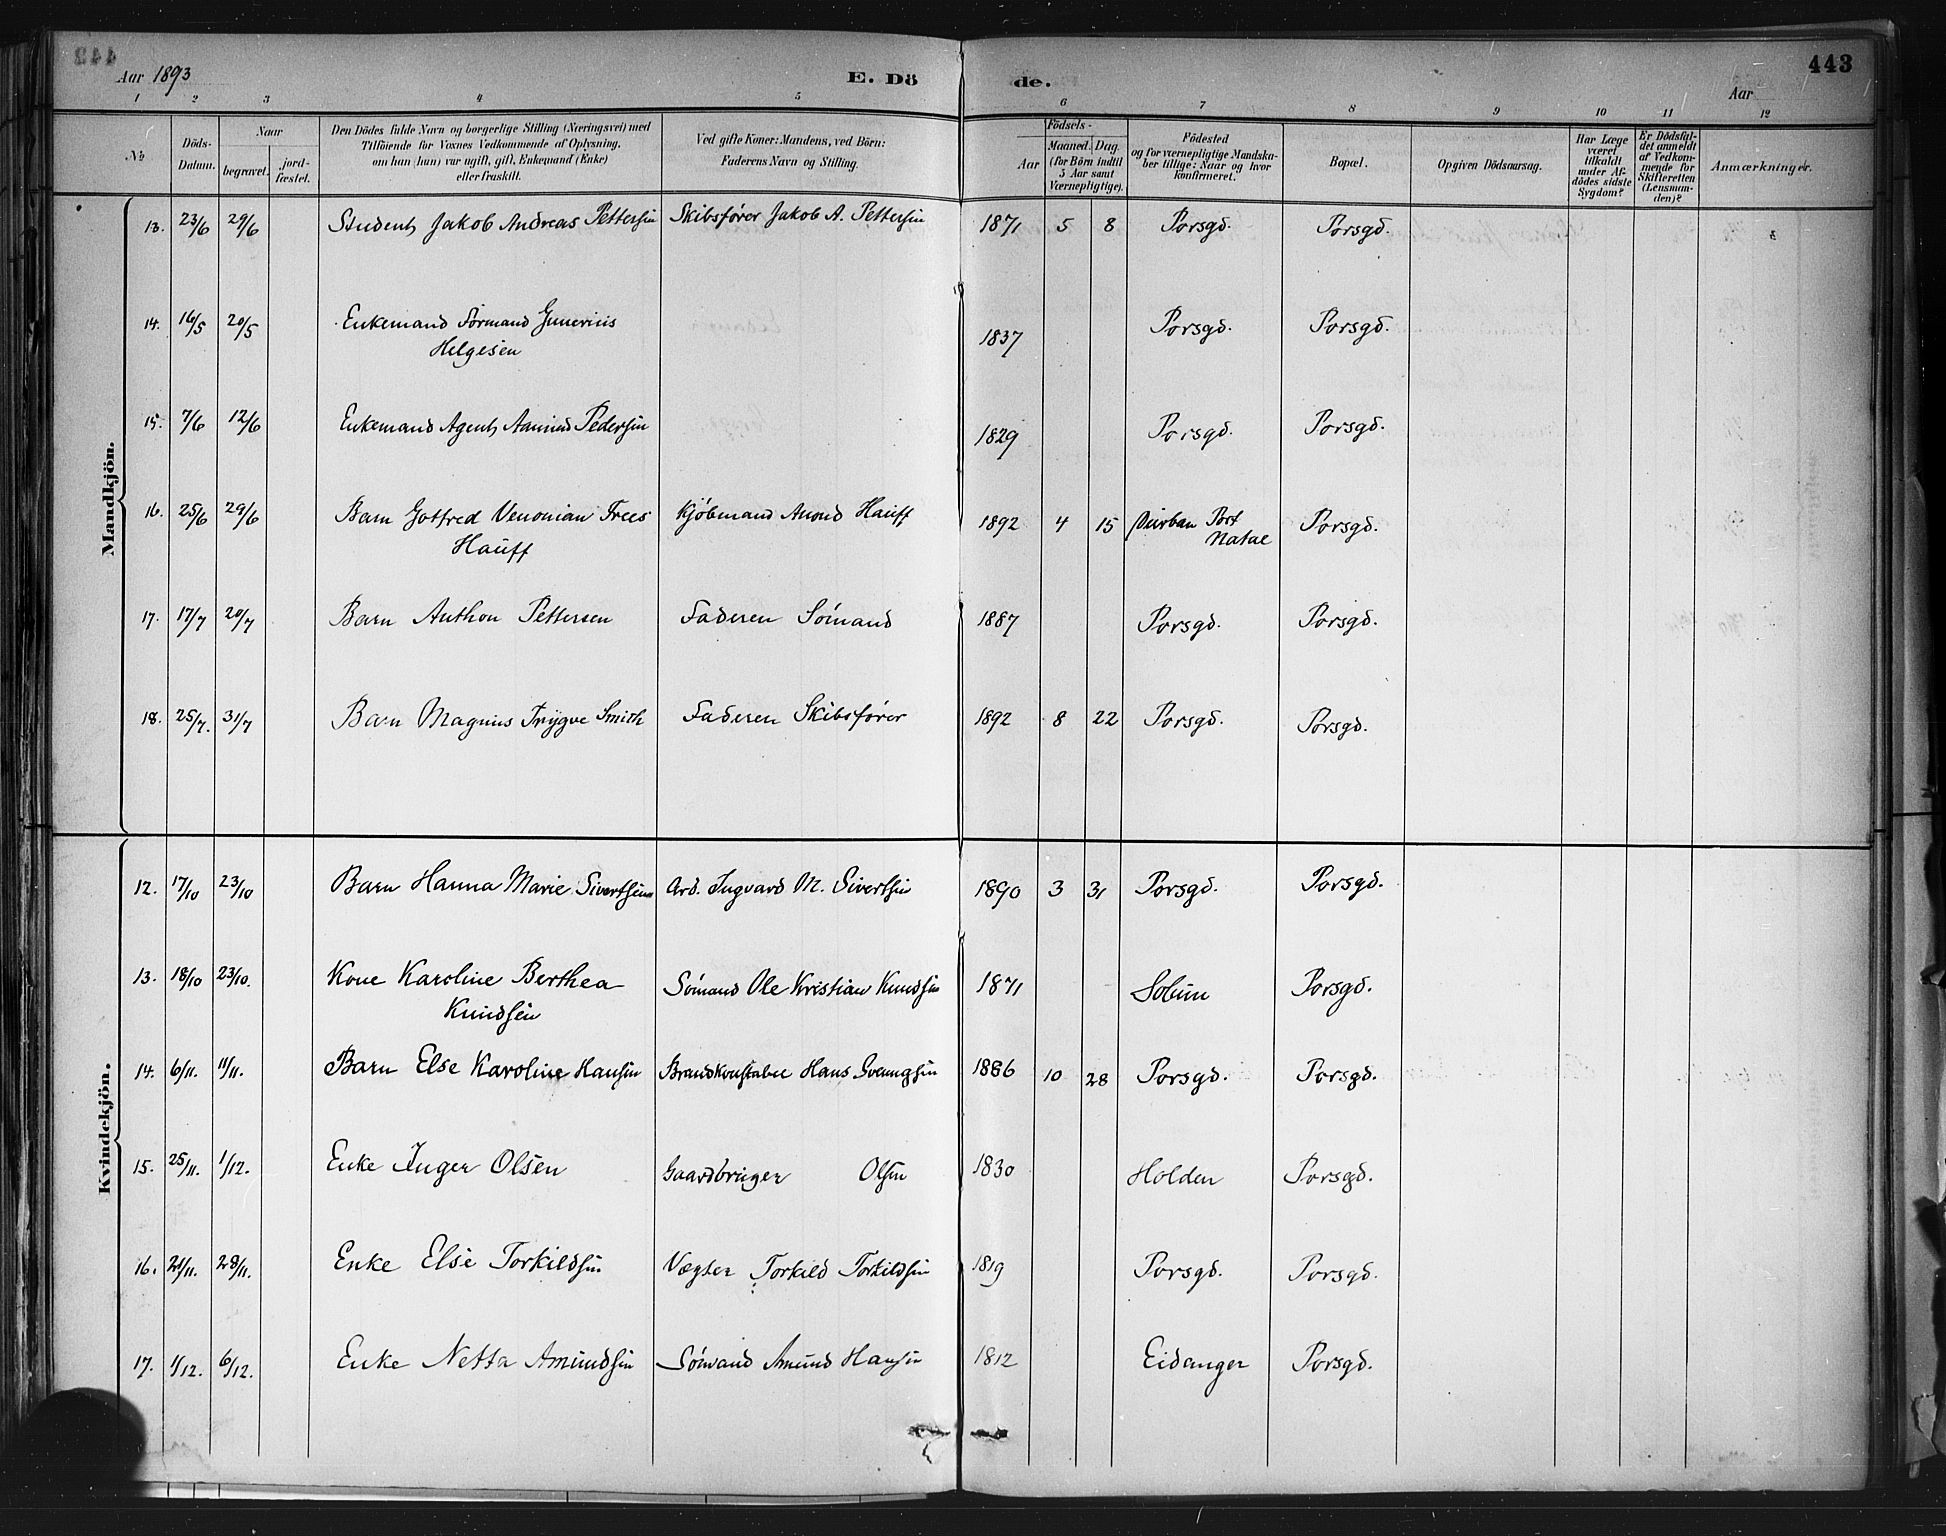 443
Aar 1893
E. Dö
de.
Aar
1 2 3 4 5 6 7 8 9 10 11 12
№
Döds-
Datum.
Naar
begravet.
jord-
fæstet.
Den Dödes fulde Navn og borgerlige Stilling (Næringsvei) med
Tilföiende for Voxnes Vedkommende af Oplysning,
om han (hun) var ugift, gift, Enkemand (Enke)
eller fraskilt.
Ved gifte Koner: Mandens, ved Börn:
Faderens Navn og Stilling.
Födsels-
Aar
Maaned. Dag
(for Börn indtil
5 Aar samt
Værnepligtige).
Födested
og for værnepligtige Mandska-
ber tillige: Naar og hvor
konfirmeret.
Bopæl.
Opgiven Dödsaarsag.
Har Læge
været
tilkaldt
under Af-
dödes sidste
Sygdom?
Er Dödsfal-
det anmeldt
af Vedkom-
mende for
Skifteretten
(Lensman-
den)?
Anmærkninger.
Mandkjön.
13. 23/6 29/6 Student Jakob Andreas Pettersen Skibsfører Jakob A. Pettersen 1871 5 8 Porsgd. Porsgd.
14. 16/5 20/5 Enkemand Formand Gunerius
Helgesen 1837 Porsgd. Porsgd.
15. 7/6 12/6 Enkemand Agent Aamund Pedersen 1829 Porsgd. Porsgd.
16. 25/6 29/6 Barn Gotfred Venonian Trees Kjøbmand Amond Hauff 1892 4 15 Durban Port Porsgd.
Hauff Natal
17. 17/7 20/7 Barn Anthon Pettersen Faderen Sømand 1887 Porsgd. Porsgd.
18. 25/7. 31/7 Barn Magnus Trygve Smith Faderen Skibsfører 1892 8 22 Porsgd. Porsgd.
Kvindekjön.
12. 17/10 23/10 Barn Hanna Marie Sivertsen Arb. Ingvard M. Sivertsen 1890 3 31 Porsgd. Porsgd.
13. 18/10 23/10. Kone Karoline Berthea Sømand Ole Kristian Knudsen 1871 Solum Porsgd.
Knudsen
14. 6/11. 11/11. Barn Else Karoline Hansen Brandkonstabel Hans Svenungsen 1886 10 28 Porsgd. Porsgd.
15. 25/11. 1/12. Enke Inger Olsen Gaardbruger Olsen 1830 Holden Porsgd.
16. 21/11. 28/11. Enke Else Torkildsen Vægter Torkild Torkildsen 1819 Porsgd. Porsgd.
17. 1/12. 6/12. Enke Netta Amundsen Sømand Amund Hansen 1812 Eidanger Porsgd.